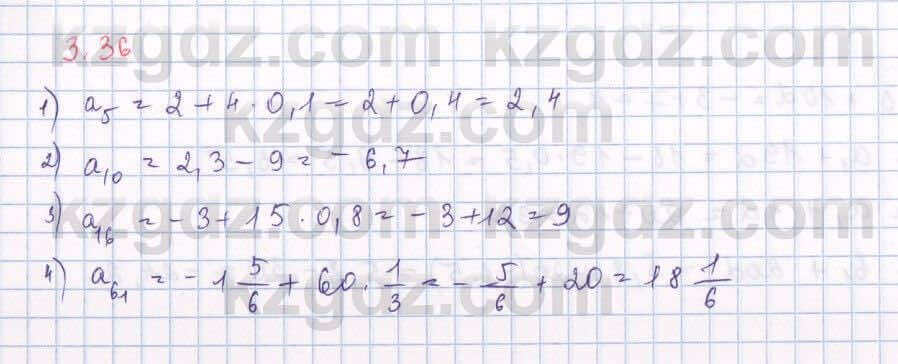 kzgdz.com kzgdz.com
3.36
1) a₅ = 2 + 4 · 0,1 = 2 + 0,4 = 2,4
kzgdz.com
2) a₁₀ = 2,3 - 9 = - 6,7
3) a₁₆ = - 3 + 15 · 0,8 = - 3 + 12 = 9
kzgdz.com kzgdz.com
4) a₆₁ = - 1 5/6 + 60 · 1/3 = - 5/6 + 20 = 18 1/6
kzgdz.com